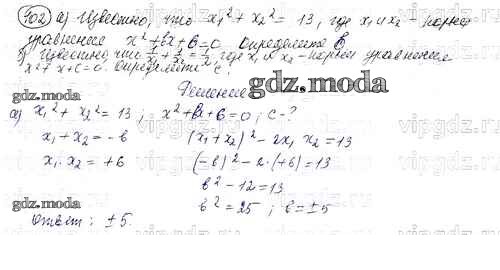 402 а) Известно, что x₁² + x₂² = 13, где x₁ и x₂ - корни
уравнения x² + bx + 6 = 0 Определите b
б) Известно, что 1/x₁ + 1/x₂ = 1/2, где x₁ и x₂ - корни уравнения
x² + x + c = 0. Определите c.
gdz.moda
Решение
а) x₁² + x₂² = 13; x² + bx + 6 = 0; c - ?
x₁ + x₂ = -b (x₁ + x₂)² - 2x₁ x₂ = 13
x₁ · x₂ = +6 (-b)² - 2·(+6) = 13
gdz.moda b² - 12 = 13
b² = 25; b = ±5
Ответ: ±5.
gdz.moda